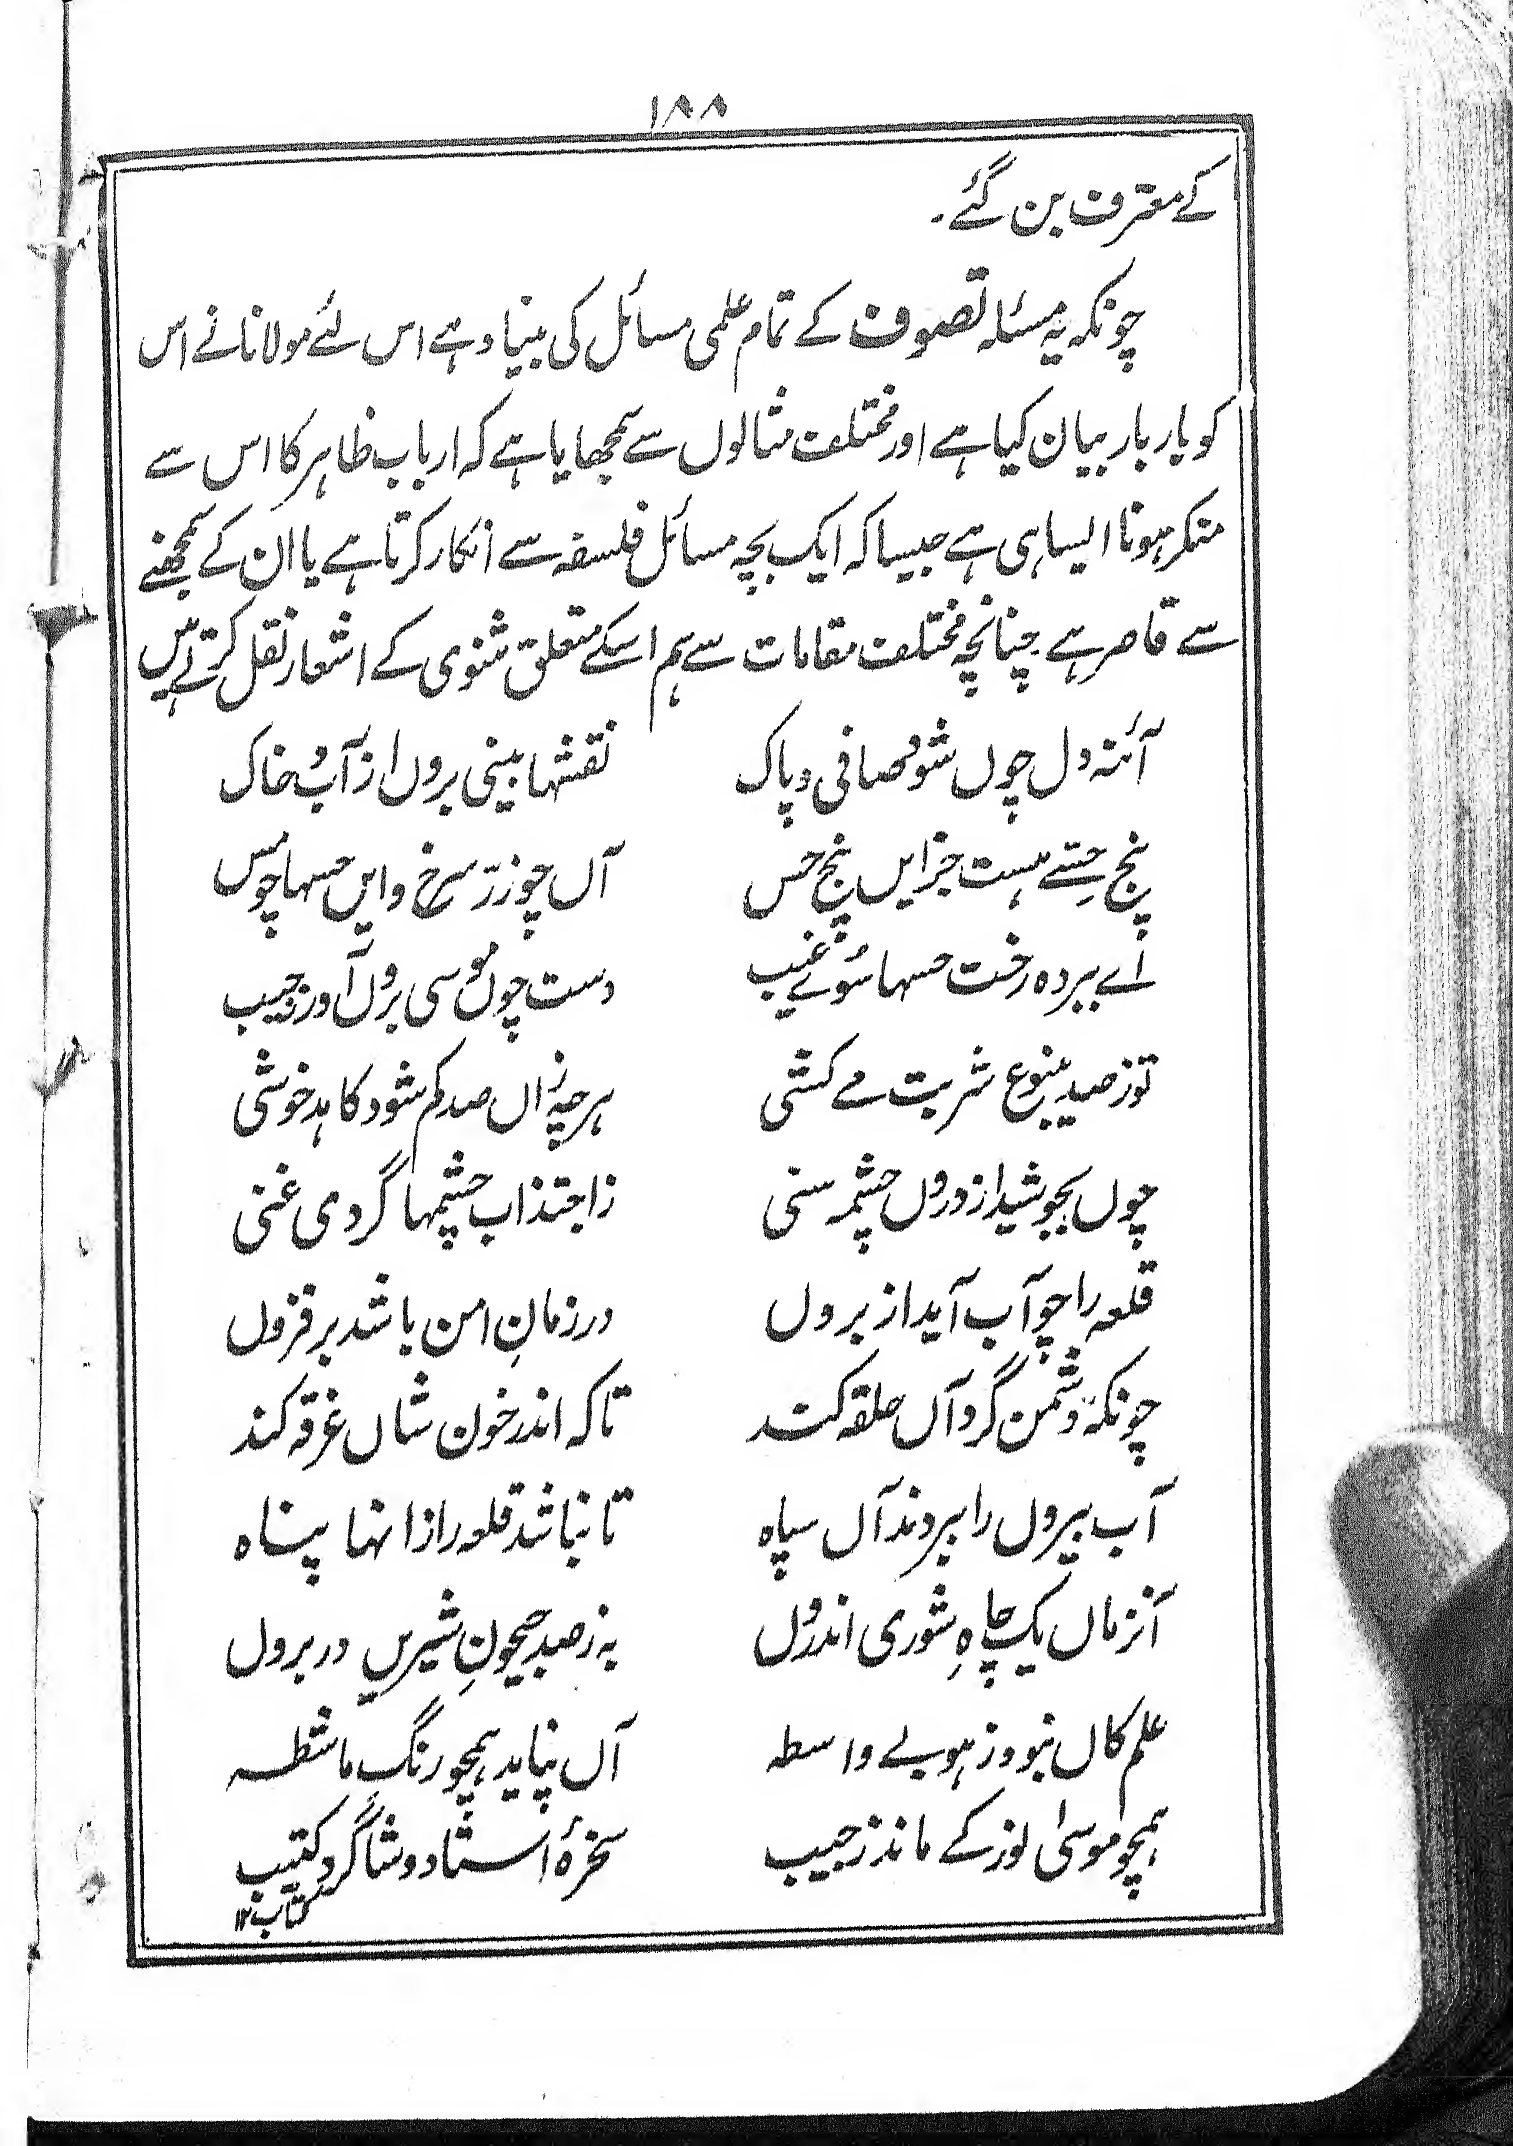 ۱۸۸
کے معترف بن گئے۔
چونکہ یہ مسئلہ تصوف کے تمام علمی مسائل کی بنیاد ہے اس لئے مولانا نے اس
کو بار بار بیان کیا ہے اور مختلف مثالوں سے سمجھایا ہے کہ ارباب ظاہر کا اس سے
منکر ہونا ایسا ہی ہے جیسا کہ ایک بچہ مسائل فلسفہ سے انکار کرتا ہے یا ان کے سمجھنے
سے قاصر ہے چنانچہ مختلف مقامات سے ہم اسکے متعلق مثنوی کے اشعار نقل کرتے ہیں
آئنہ دل چوں شود صافی و پاک نقشہا بینی بروں از آب و خاک
پنج حسّے ہست جز ایں پنج حس آں چو زرّ سرخ و ایں حسہا چو مس
اے ببردہ رخت حسہا سوئے غیب دست چوں موسی بروں آور ز جیب
تو ز صد ینبوع شربت مے کشی ہر چہ زاں صد کم شود کاہد خوشی
چوں بجوشید از دروں چشمہ سنی ز اجتذاب چشمہا گردی غنی
قلعہ را چو آب آید از بروں در زمانِ امن باشد بر فزوں
چونکہ دشمن گرد آں حلقہ کند تا کہ اندر خون شاں غرقہ کند
آب بیروں را ببردند آں سپاہ تا نباشد قلعہ را زانہا پناہ
آنزماں یک چاہِ شوری اندروں بہ ز صد جیحونِ شیریں در بروں
علم کاں نبود ز ہو بے واسطہ آں نپاید ہمچو رنگ ماشطہ
ہمچو موسیٰ نور کے ماند ز جیب سخرۂ استاد و شاگرد کتیب
کتاب ۱۲